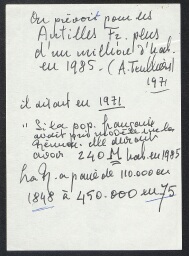 On prévoit pour les
Antilles Fr. plus
d'un million d'hab.
en 1985. (A.
1971
il disait en 1971
"Si la pop. française
avait
elle devrait
avoir 240 M hab. en 1985
La a passé de 110.000 en
1848 à 450.000 en 75